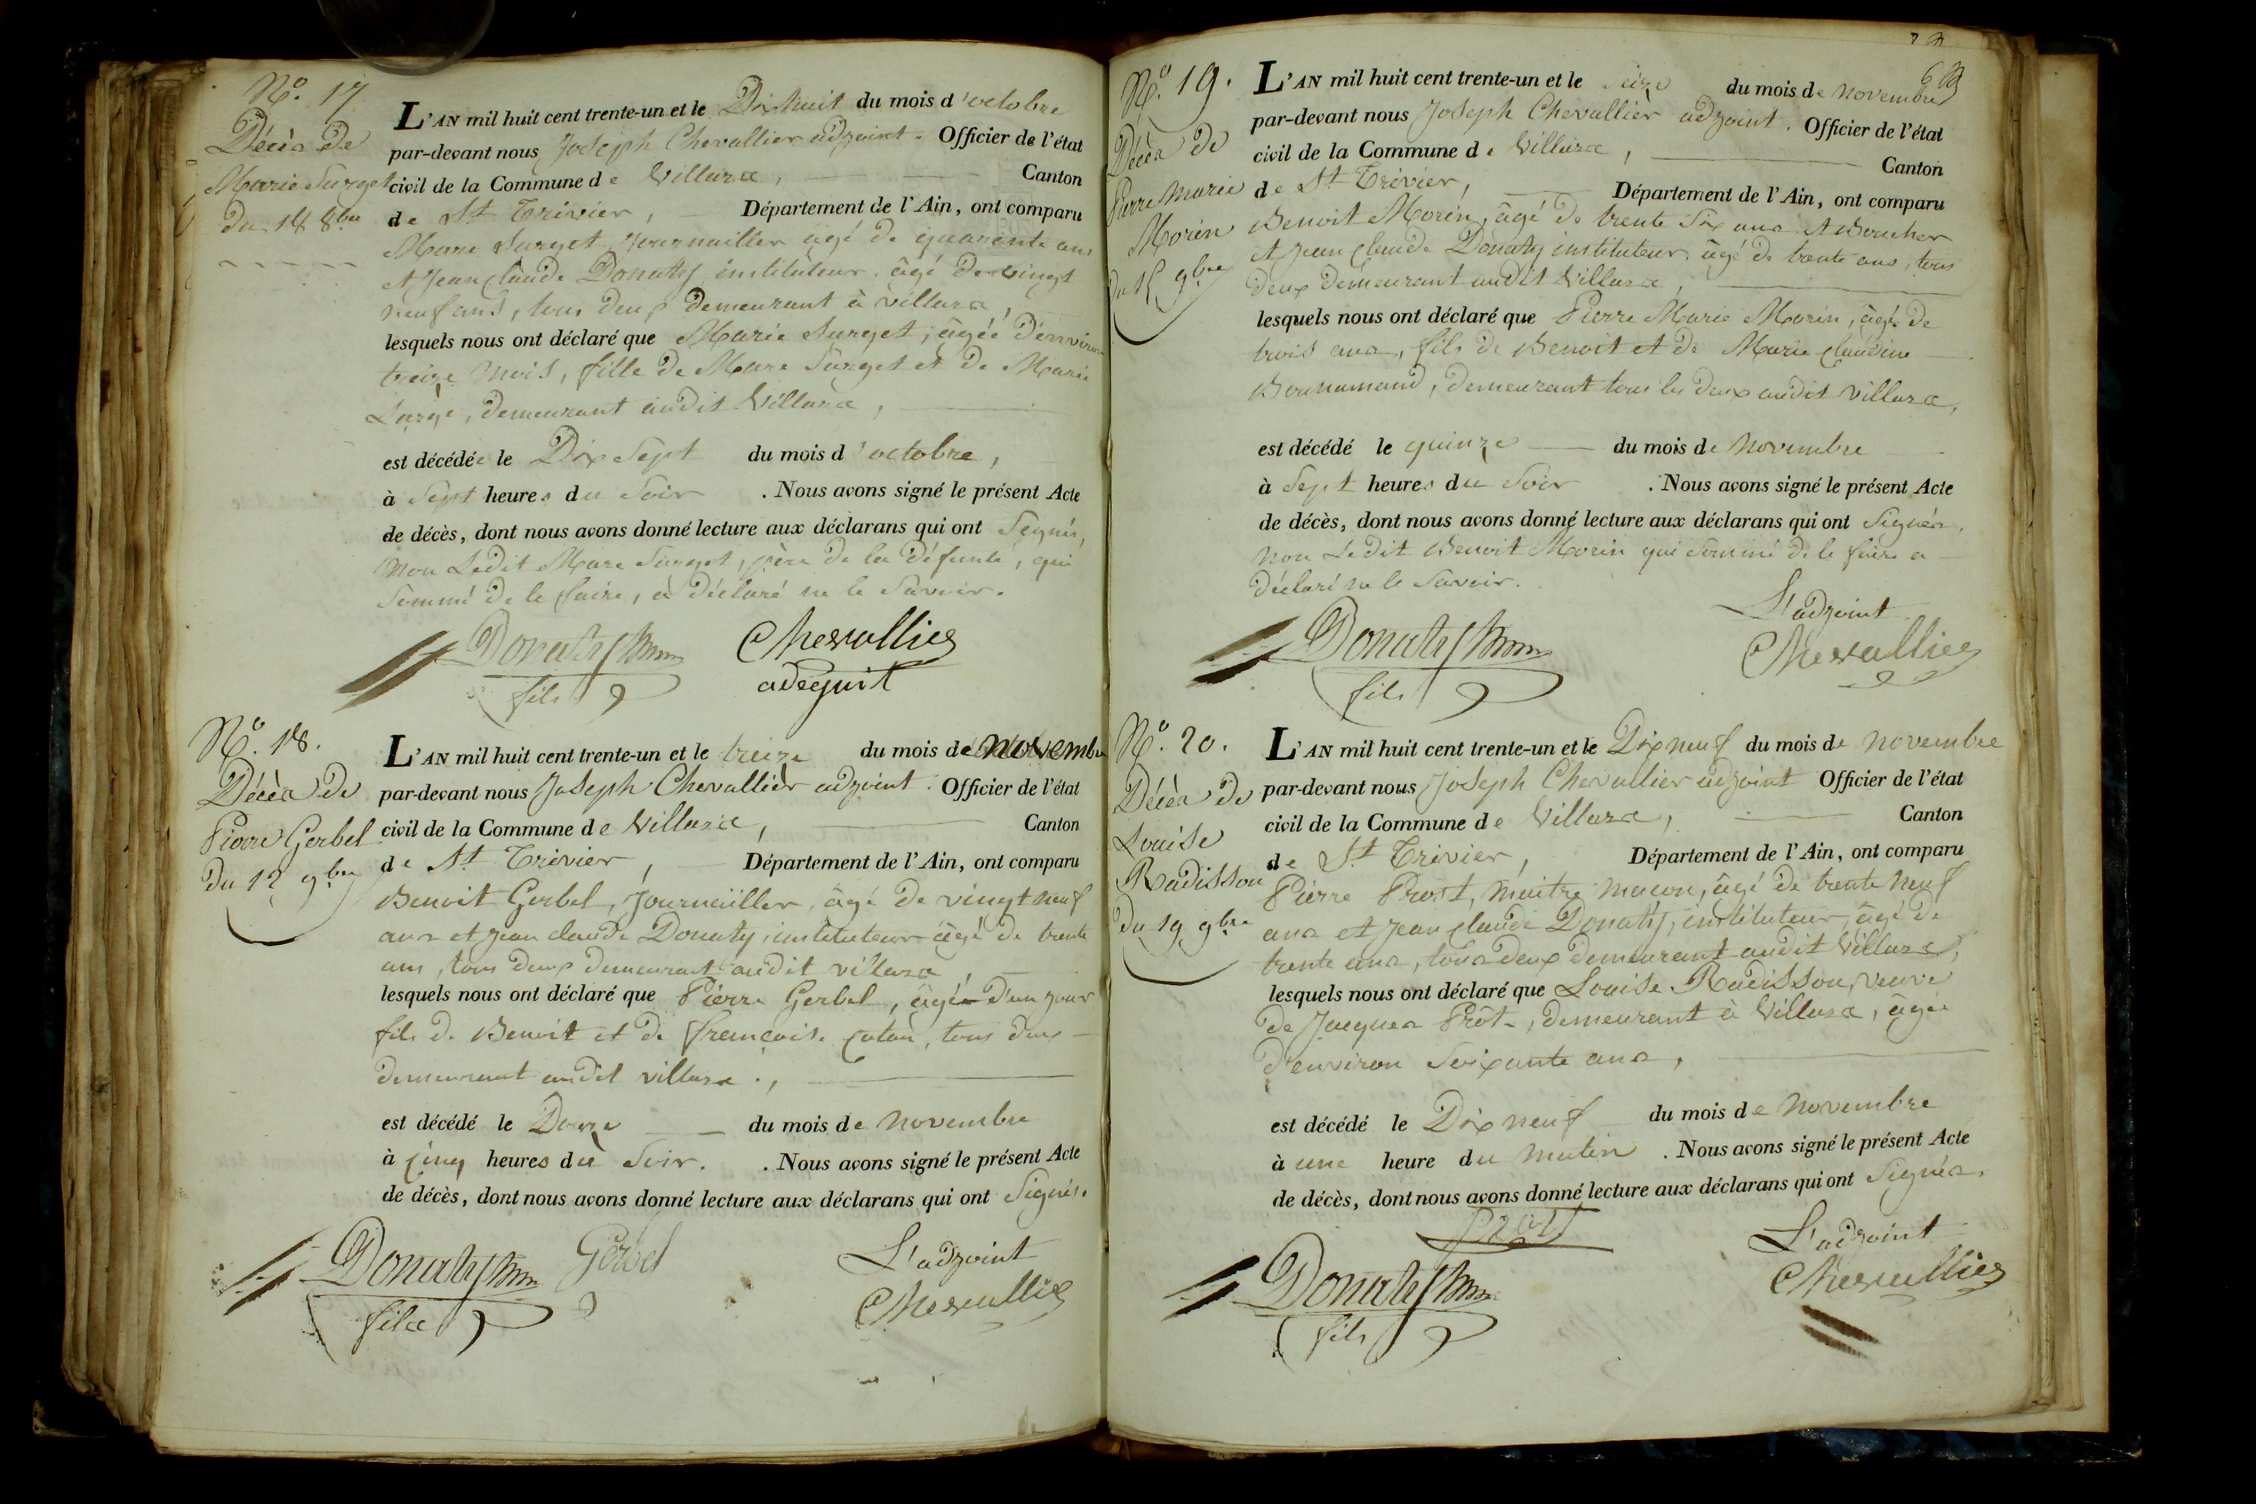 N.o 17
Décès de
Marie Surget
du 18 8bre
L'AN mil huit cent trente-un et le Dixhuit du mois d'octobre
par-devant nous Joseph Chevallier adjoint. Officier de l'état
civil de la Commune de Villars, Canton
de St Trivier, Département de l'Ain, ont comparu
Marc Surget, Journailler âgé de quarante ans
et Jean Claude Donaty instituteur. âgé de vingt
neuf ans, tous deux demeurant à villars,
lesquels nous ont déclaré que Marie Surget, âgée d'environ
treize mois, fille de Marc Surget et de Marie
demeurant audit Villars,
est décédée le Dix Sept du mois d'octobre,
à Sept heures du Soir. Nous avons signé le présent Acte
de décès, dont nous avons donné lecture aux déclarans qui ont Signés,
non Ledit Marc Surget, père de la défunte, qui
Sommé de le faire, à déclaré ne le Savoir.
Donaty
fils
Chevallier
adeguit
N.o 18.
Décès de
Pierre Gerbel
du 12 9bre
L'AN mil huit cent trente-un et le treize du mois de novembre
par-devant nous Joseph Chevallier adjoint. Officier de l'état
civil de la Commune de Villars, Canton
de St Trivier, Département de l'Ain, ont comparu
Benoit Gerbel, Journailler, âgé de vingt neuf
ans et Jean claude Donaty, instituteur âgé de trente
ans, tous deux demeurant audit villars,
lesquels nous ont déclaré que Pierre Gerbel, âgé d'un jour
fils de Benoit et de françoise Catau, tous deux
demeurant audit villars.,
est décédé le Douze du mois de novembre
à Cinq heures du Soir. . Nous avons signé le présent Acte
de décès, dont nous avons donné lecture aux déclarans qui ont Signés.
Donaty
fils
Gerbel
L'adjoint
Chevallier
N.o 19.
Décès de
Pierre Marie
Morin
du 15 9bre
L'AN mil huit cent trente-un et le Seize du mois de novembre
par-devant nous Joseph Chevallier adjoint. Officier de l'état
civil de la Commune de Villars, Canton
de St Trivier, Département de l'Ain, ont comparu
Benoit Morin, âgé de trente Six ans et Boucher
et Jean Claude Donaty instituteur. âgé de trente ans, tous
deux demeurant audit Villars,
lesquels nous ont déclaré que Pierre Marie Morin, âgé de
trois ans, fils de Benoit et de Marie Claudine
Bonnamand, demeurant tous les deux audit Villars,
est décédé le quinze du mois de novembre
à Sept heures du Soir. Nous avons signé le présent Acte
de décès, dont nous avons donné lecture aux déclarans qui ont Signés,
non Ledit Benoit Morin qui Sommé de le faire a
déclaré ne le Savoir.
Donaty
fils
L'adjoint
Chevallier
N.o 20.
Décès de
Louise
Radisson
du 19 9bre
L'AN mil huit cent trente-un et le Dixneuf du mois de novembre
par-devant nous Joseph Chevallier adjoint Officier de l'état
civil de la Commune de Villars, Canton
de St Trivier, Département de l'Ain, ont comparu
Pierre Prost, maitre macon, âgé de trente neuf
ans et Jean Claude Donaty, instituteur, âgé de
trente ans, tous deux demeurant audit Villars,
lesquels nous ont déclaré que Louise Radisson, veuve
de Jacques Prôt, demeurant à Villars, âgée
d'environ Soixante ans,
est décédé le Dix neuf du mois de novembre
à une heure du matin. Nous avons signé le présent Acte
de décès, dont nous avons donné lecture aux déclarans qui ont Signés.
Donaty
fils
L'adjoint
Chevallier